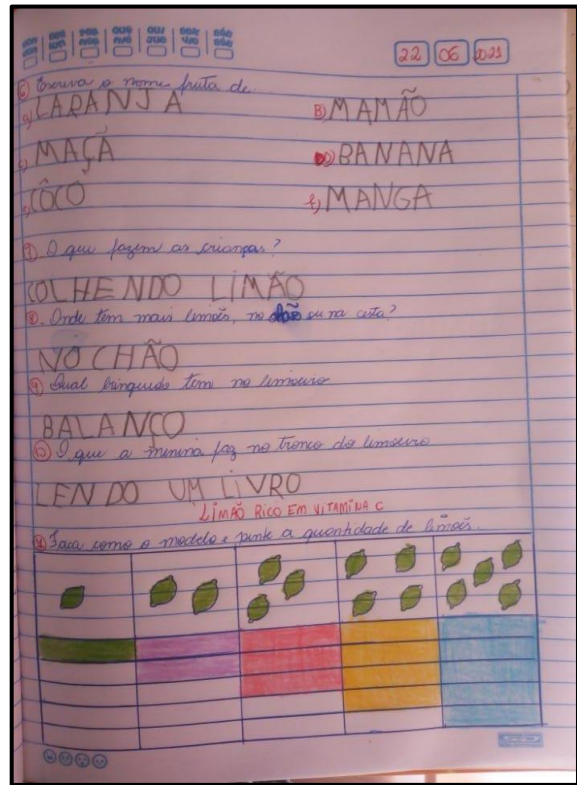 22 06 2021
6) Escreva o nome fruta de
a) LARANJA B) MAMÃO
c) MAÇÃ D) BANANA
e) CÔCO f) MANGA
7) O que fazem as crianças?
COLHENDO LIMÃO
8. Onde tem mais limões, no chão ou na cesta?
NO CHÃO
9) Qual brinquedo tem no limoeiro
BALANÇO
10) O que a menina faz no tronco do limoeiro
LENDO UM LIVRO
LIMÃO RICO EM VITAMINA C
11) Faça como o modelo e pinte a quantidade de limões.